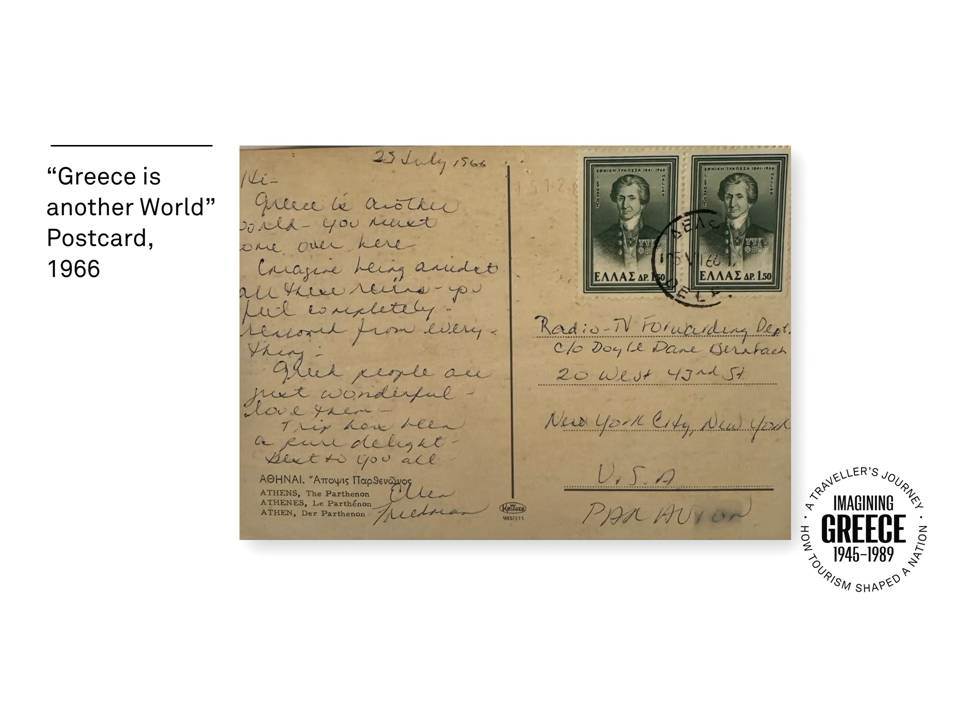 “Greece is
another World”
Postcard,
1966
25 July 1966
Hi-
Greece is another
world - you must
come over here
Imagine being amidst
all these ruins - you
feel completely
removed from every-
thing -
Greek people are
just wonderful -
love them -
Trip has been
a pure delight -
Best to you all -
Ellen
Friedman
ΑΘΗΝΑΙ. Ἄποψις Παρθενῶνος
ATHENS, The Parthenon
ATHENES, Le Parthénon
ATHEN, Der Parthenon
ΕΘΝΙΚΗ ΤΡΑΠΕΖΑ 1841-1966
ΕΛΛΑΣ ΔΡ. 1.50
ΕΘΝΙΚΗ ΤΡΑΠΕΖΑ 1841-1966
ΕΛΛΑΣ ΔΡ. 1.50
Radio-TV Forwarding Dept.
c/o Doyle Dane Bernbach
20 West 43rd St
New York City, New York
U.S.A
PAR AVION
A TRAVELLER'S JOURNEY
IMAGINING
GREECE
1945–1989
HOW TOURISM SHAPED A NATION